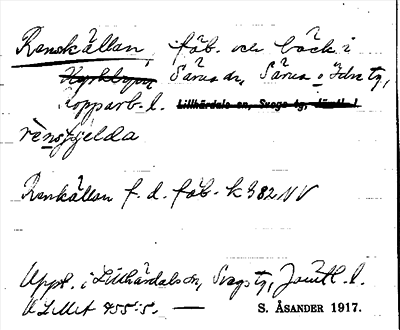 Renskällan, fäb. och bäck i
Särna sn, Särna o Idre tg,
Kopparb. l. Lillhärdals sn, Svegs tg, Jämtl. l.
Renkällan f. d. fäb. k 382 NV
Uppt. i Lillhärdals sn, Svegs tg, Jämtl. l.
S. ÅSANDER 1917.